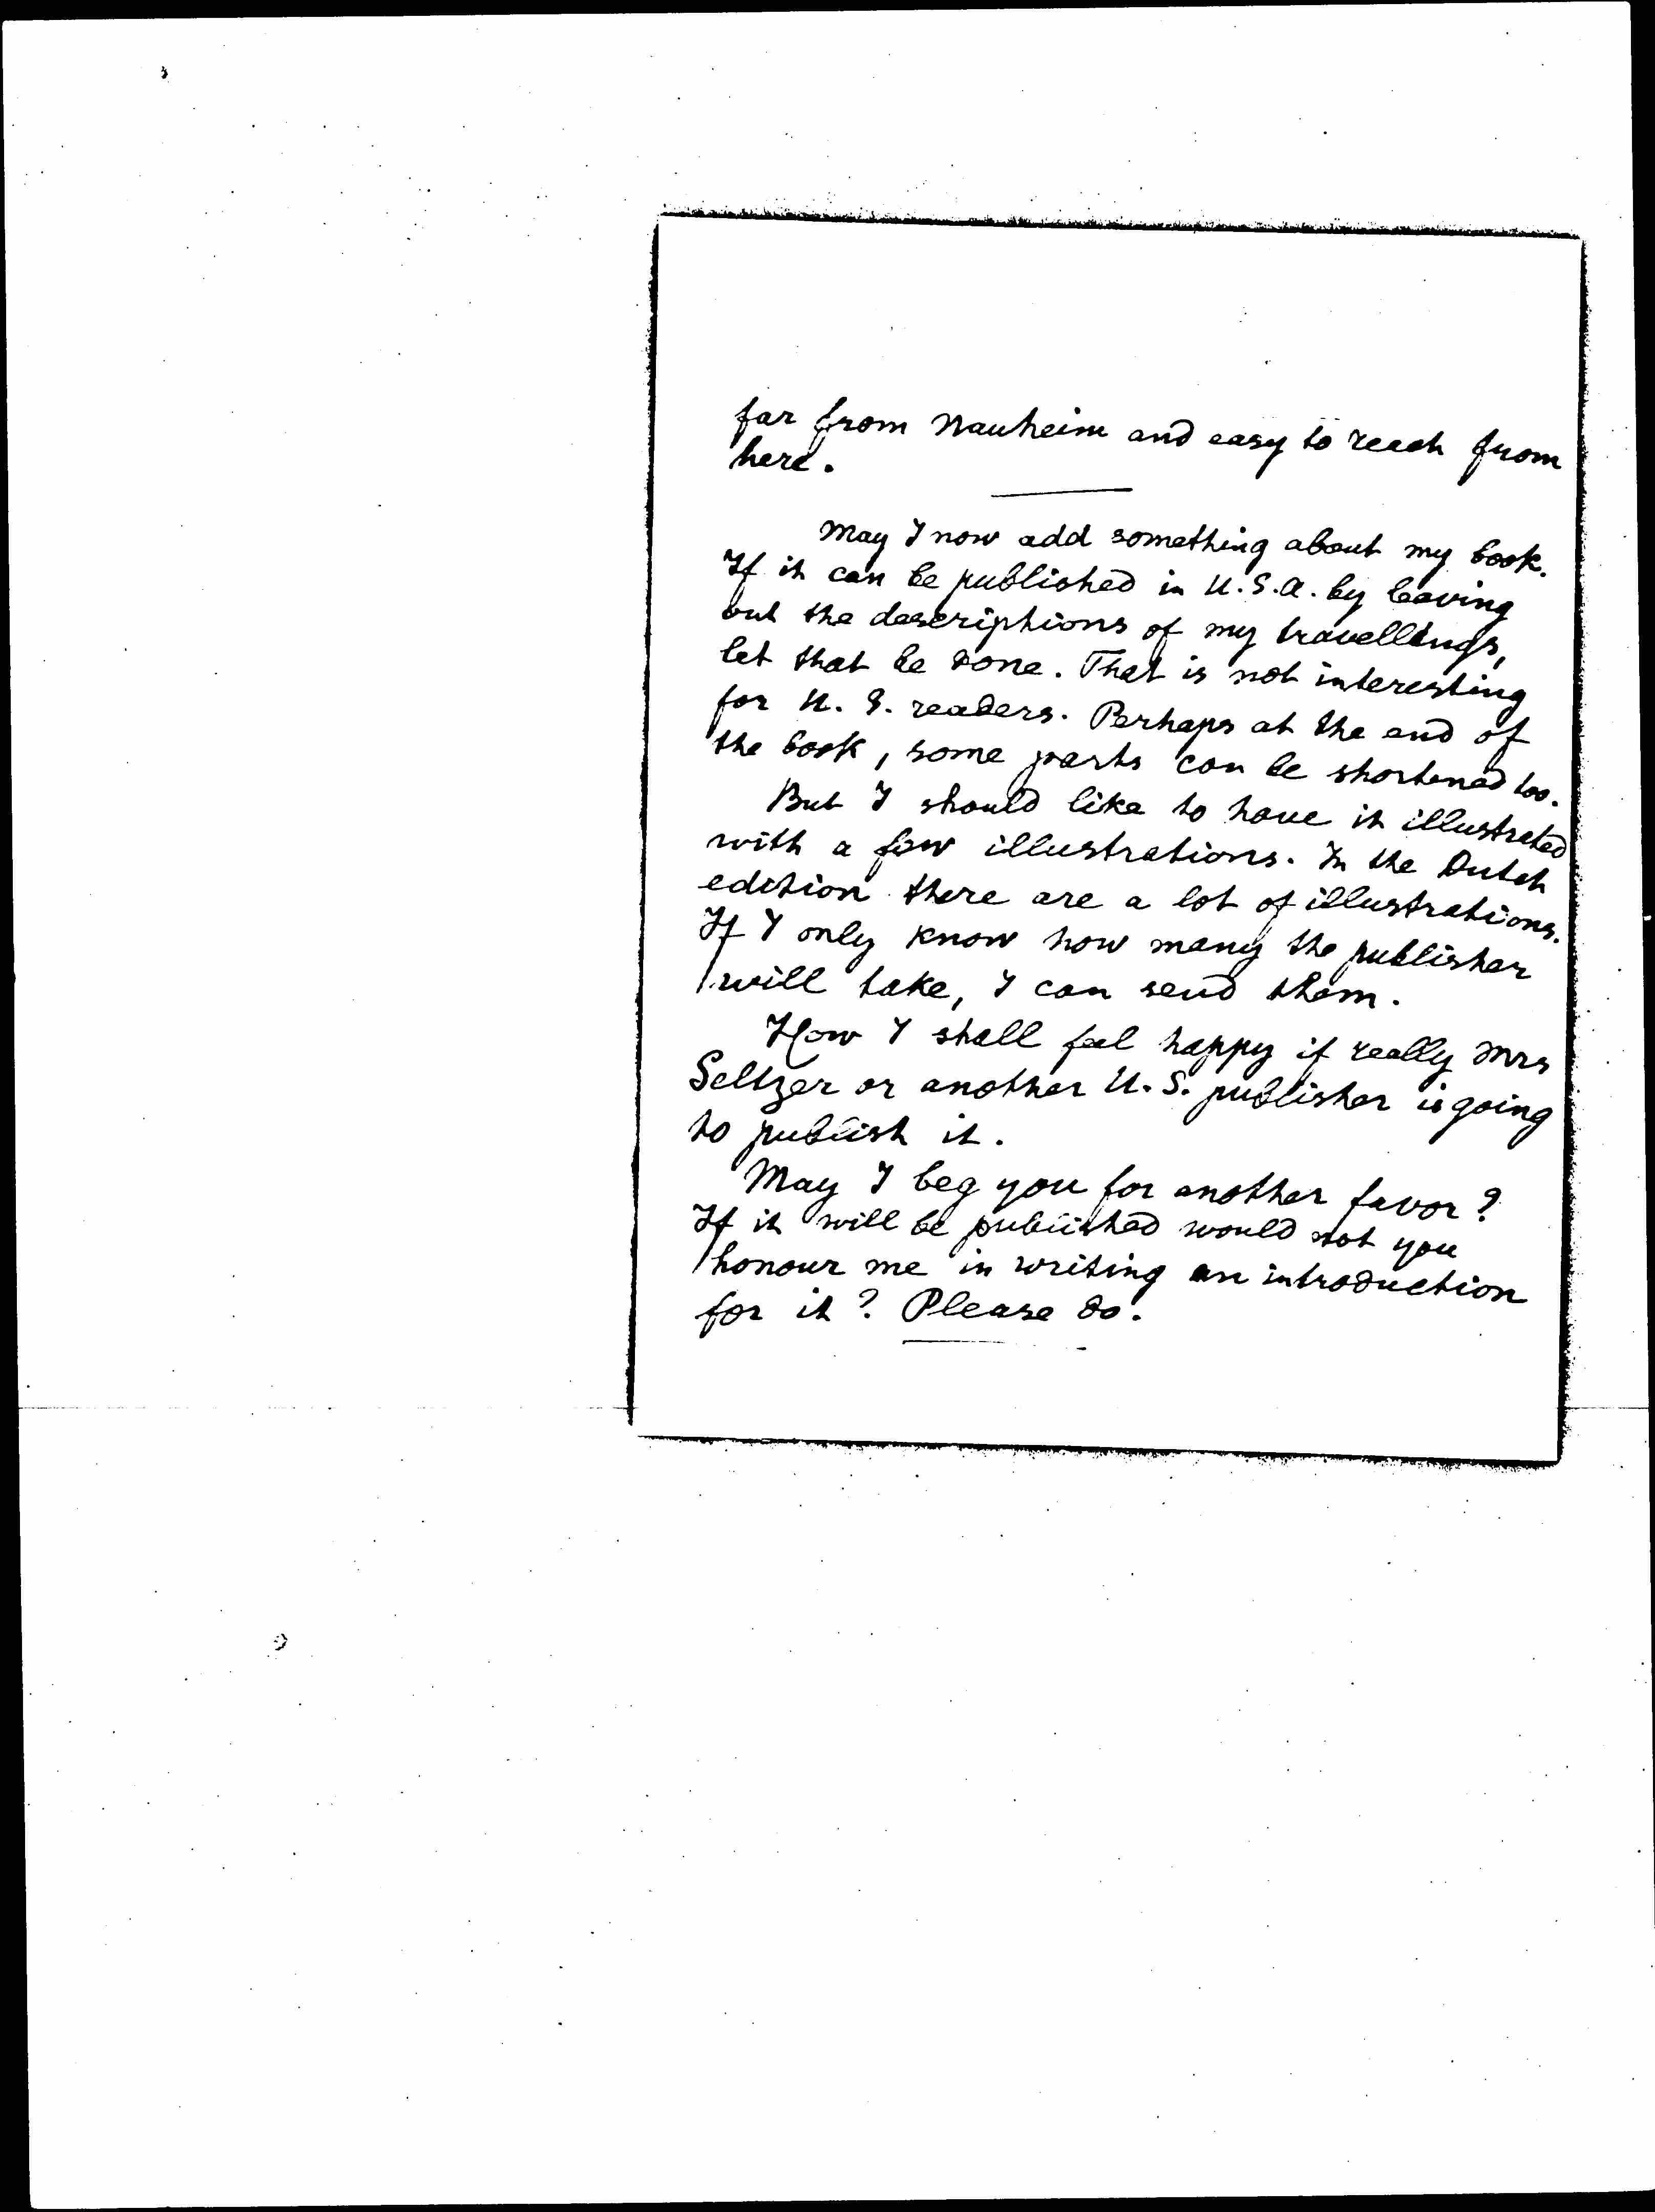 far from Nauheim and easy to reach from
here.
May I now add something about my book.
If it can be published in U.S.A. by leaving
out the descriptions of my travellings,
let that be done. That is not interesting
for U.S. readers. Perhaps at the end of
the book, some parts can be shortened too.
But I should like to have it illustrated
with a few illustrations. In the Dutch
edition there are a lot of illustrations.
If I only know how many the publisher
will take, I can send them.
How I shall feel happy if really Mrs
Seltzer or another U.S. publisher is going
to publish it.
May I beg you for another favor?
If it will be published would not you
honour me in writing an introduction
for it? Please do.